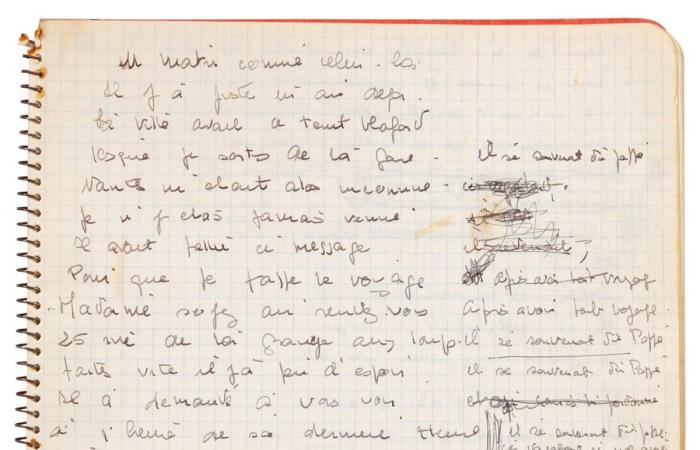 un matin comme celui-là
Il y a juste un an déjà
la ville avait ce teint blafard
lorsque je sortis de la gare - il se souvenait du passé
Nantes m'était alors inconnue -
Je n'y étais jamais venue
il avait fallu ce message il revenait,
Pour que je fasse le voyage après avoir tout voyagé
- Madame soyez au rendez vous après avoir tout voyagé.
25 rue de la grange aux loup. il se souvenait du Passé
faites vite il y a peu d'espoir il se souvenait du Passé
Il a demandé à vous voir
à l'heure de sa dernière heure il se souvenait du passé